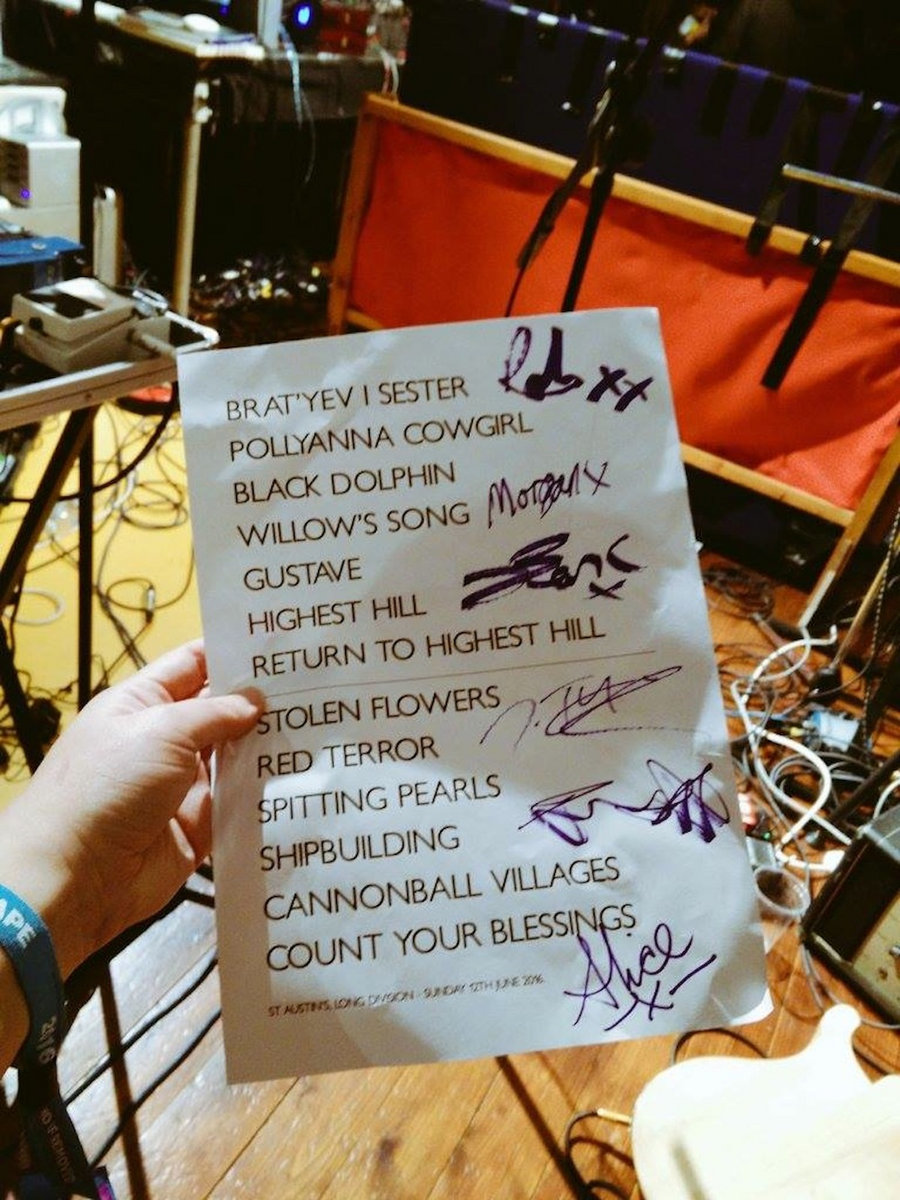 BRAT'YEV I SESTER
POLLYANNA COWGIRL
BLACK DOLPHIN
WILLOW'S SONG
Morgan x
GUSTAVE
HIGHEST HILL
RETURN TO HIGHEST HILL
STOLEN FLOWERS
RED TERROR
SPITTING PEARLS
SHIPBUILDING
CANNONBALL VILLAGES
COUNT YOUR BLESSINGS
Alice x
ST AUSTIN'S, LONG DIVISION - SUNDAY 12TH JUNE 2016
2016